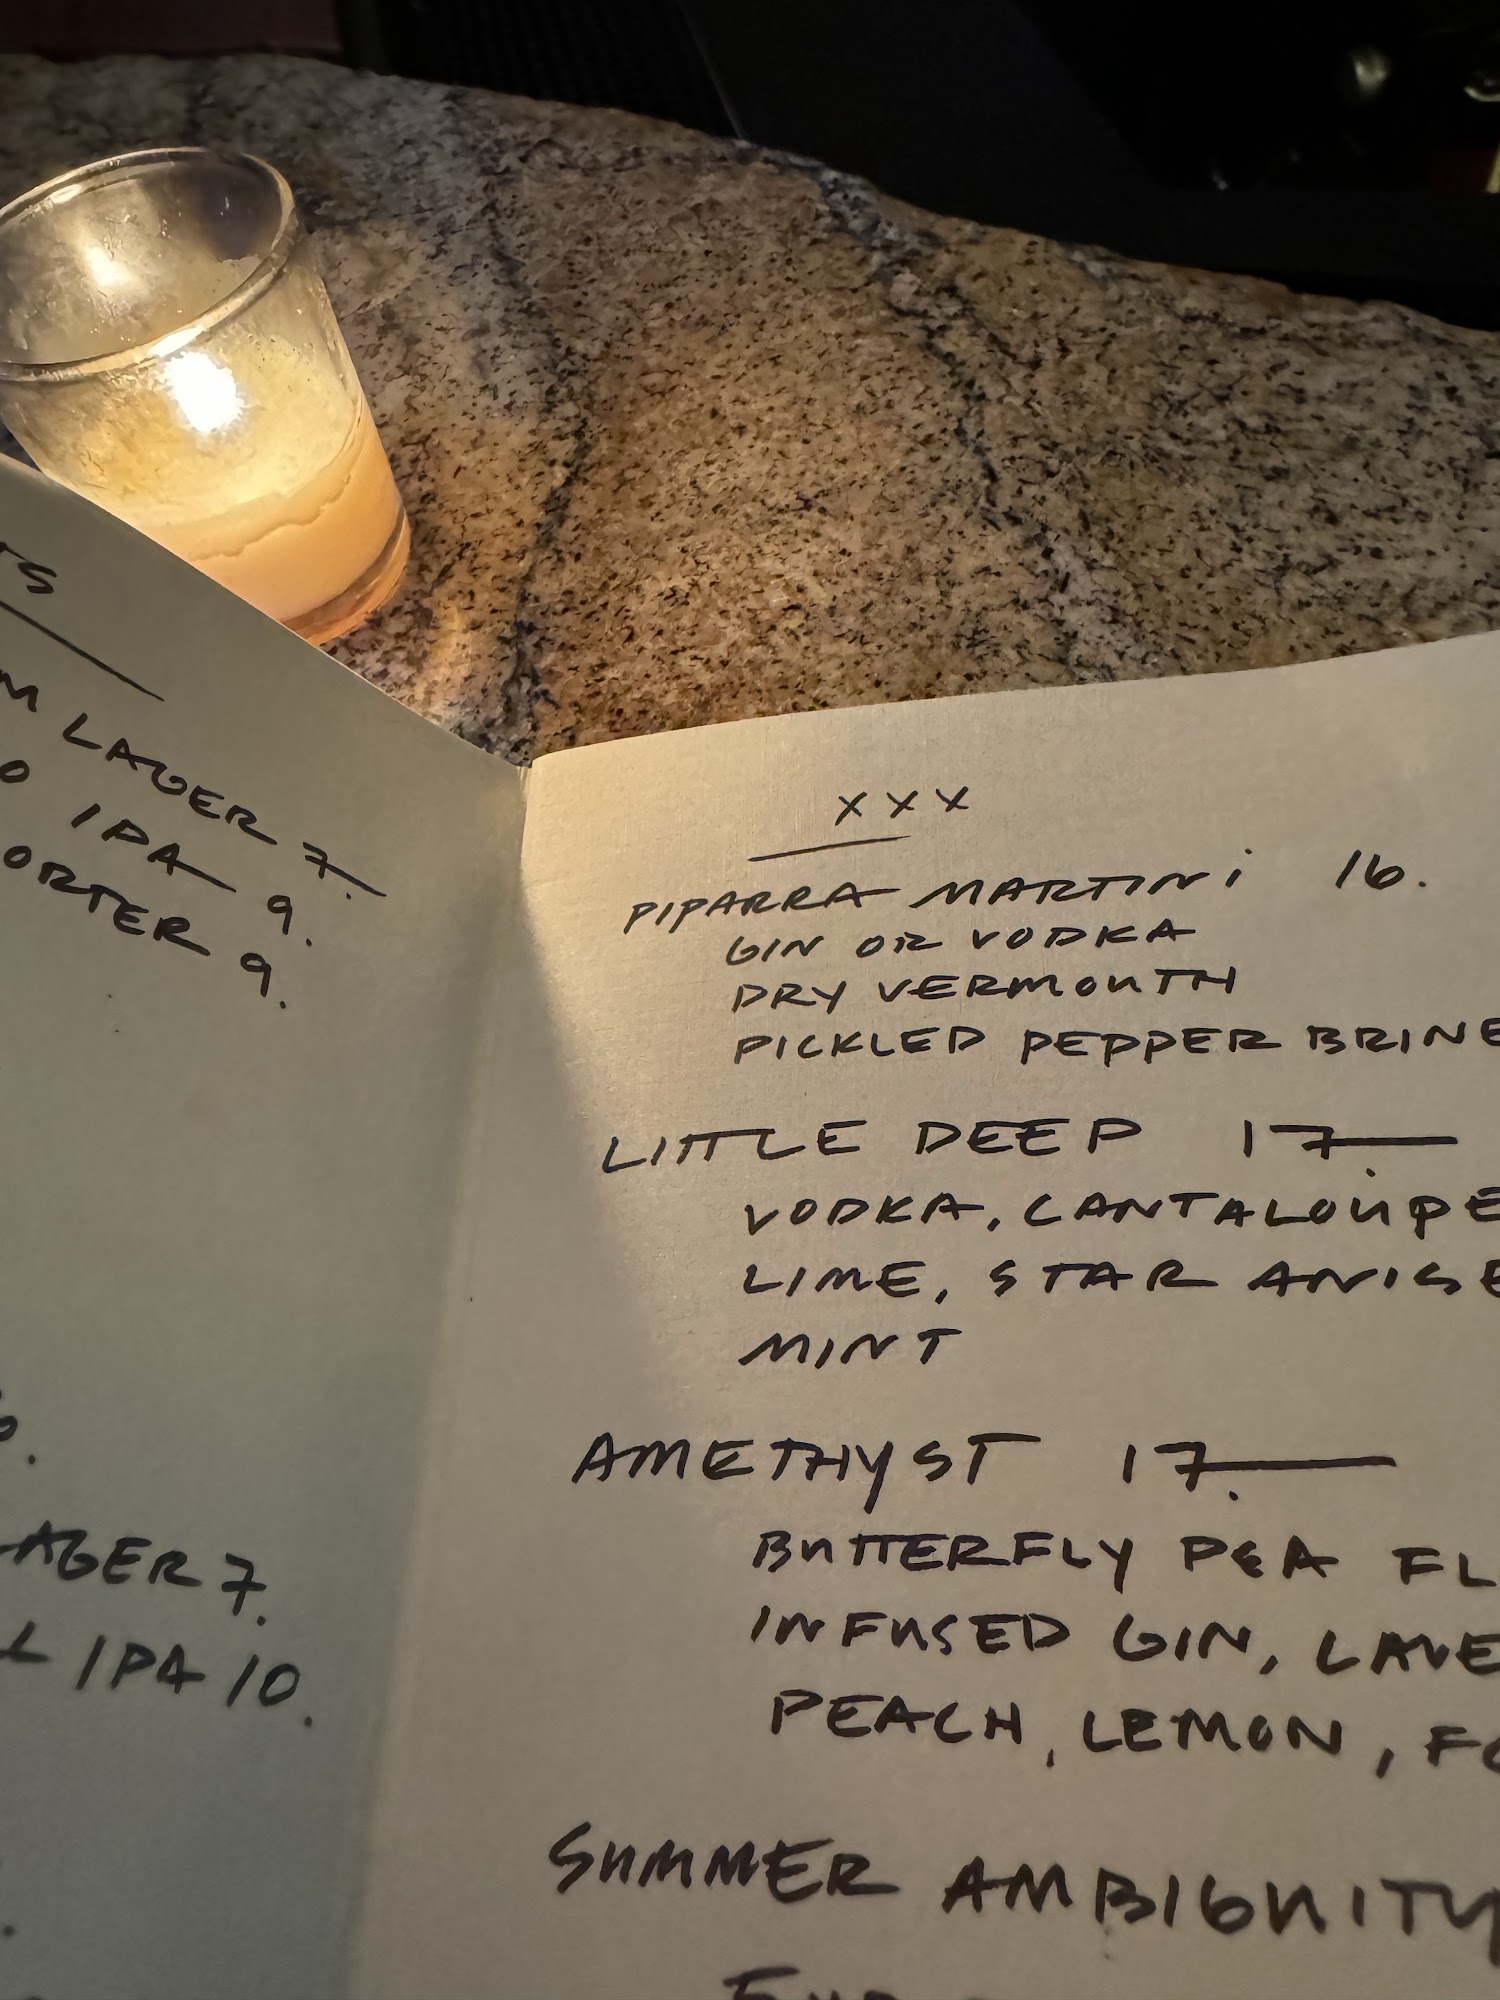 LAGER 7.
IPA 9.
9.
LAGER 7.
IPA 10.
XXX
PIPARRA MARTINI 16.
GIN OR VODKA
DRY VERMOUTH
PICKLED PEPPER BRINE
LITTLE DEEP 17.
VODKA, CANTALOUPE
LIME, STAR ANISE
MINT
AMETHYST 17.
BUTTERFLY PEA
INFUSED GIN,
PEACH, LEMON,
SUMMER AMBIGUITY